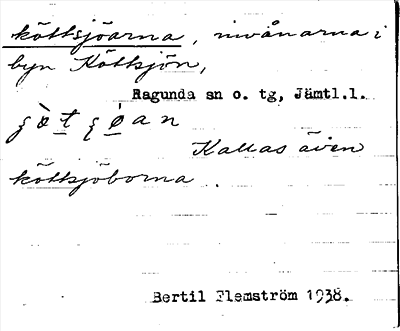 köttsjöarna, invånarna i
byn Köttsjön,
Ragunda sn o. tg, Jämtl.l.
Kallas även
köttsjöborna.
Bertil Flemström 1938.